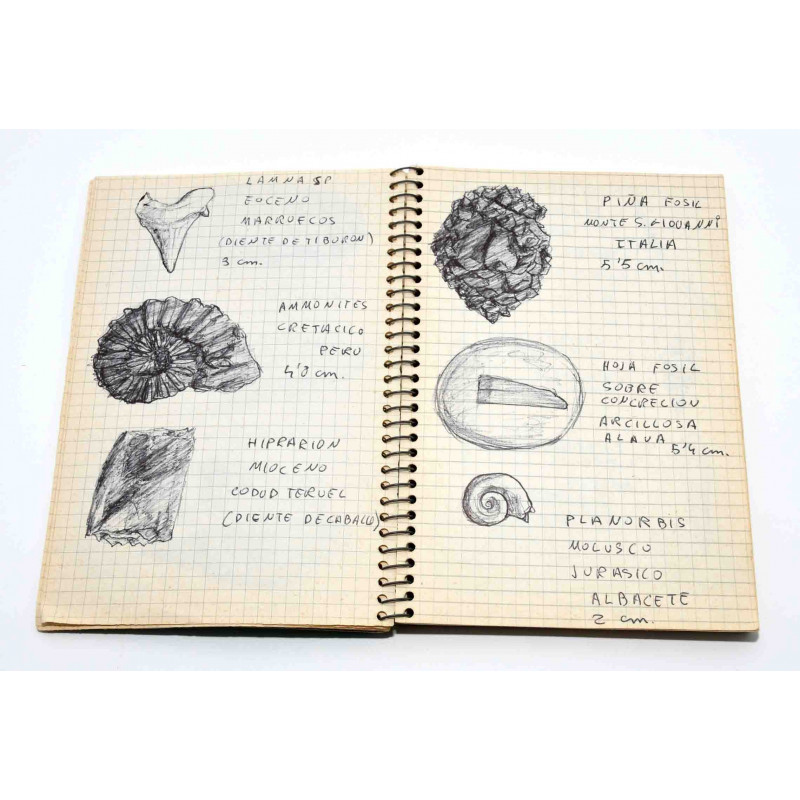 LAMNA SP
EOCENO
MARRUECOS
(DIENTE DE TIBURON)
3 cm.
AMMONITES
CRETACICO
PERU
4'8 cm.
HIPRARION
MIOCENO
CODOD TERUEL
(DIENTE DE CABALLO)
PIÑA FOSIL
MONTE S. GIOVANNI
ITALIA
5'5 cm.
HOJA FOSIL
SOBRE
CONCRECION
ARCILLOSA
ALAVA
5'4 cm.
PLANORBIS
MOLUSCO
JURASICO
ALBACETE
2 cm.